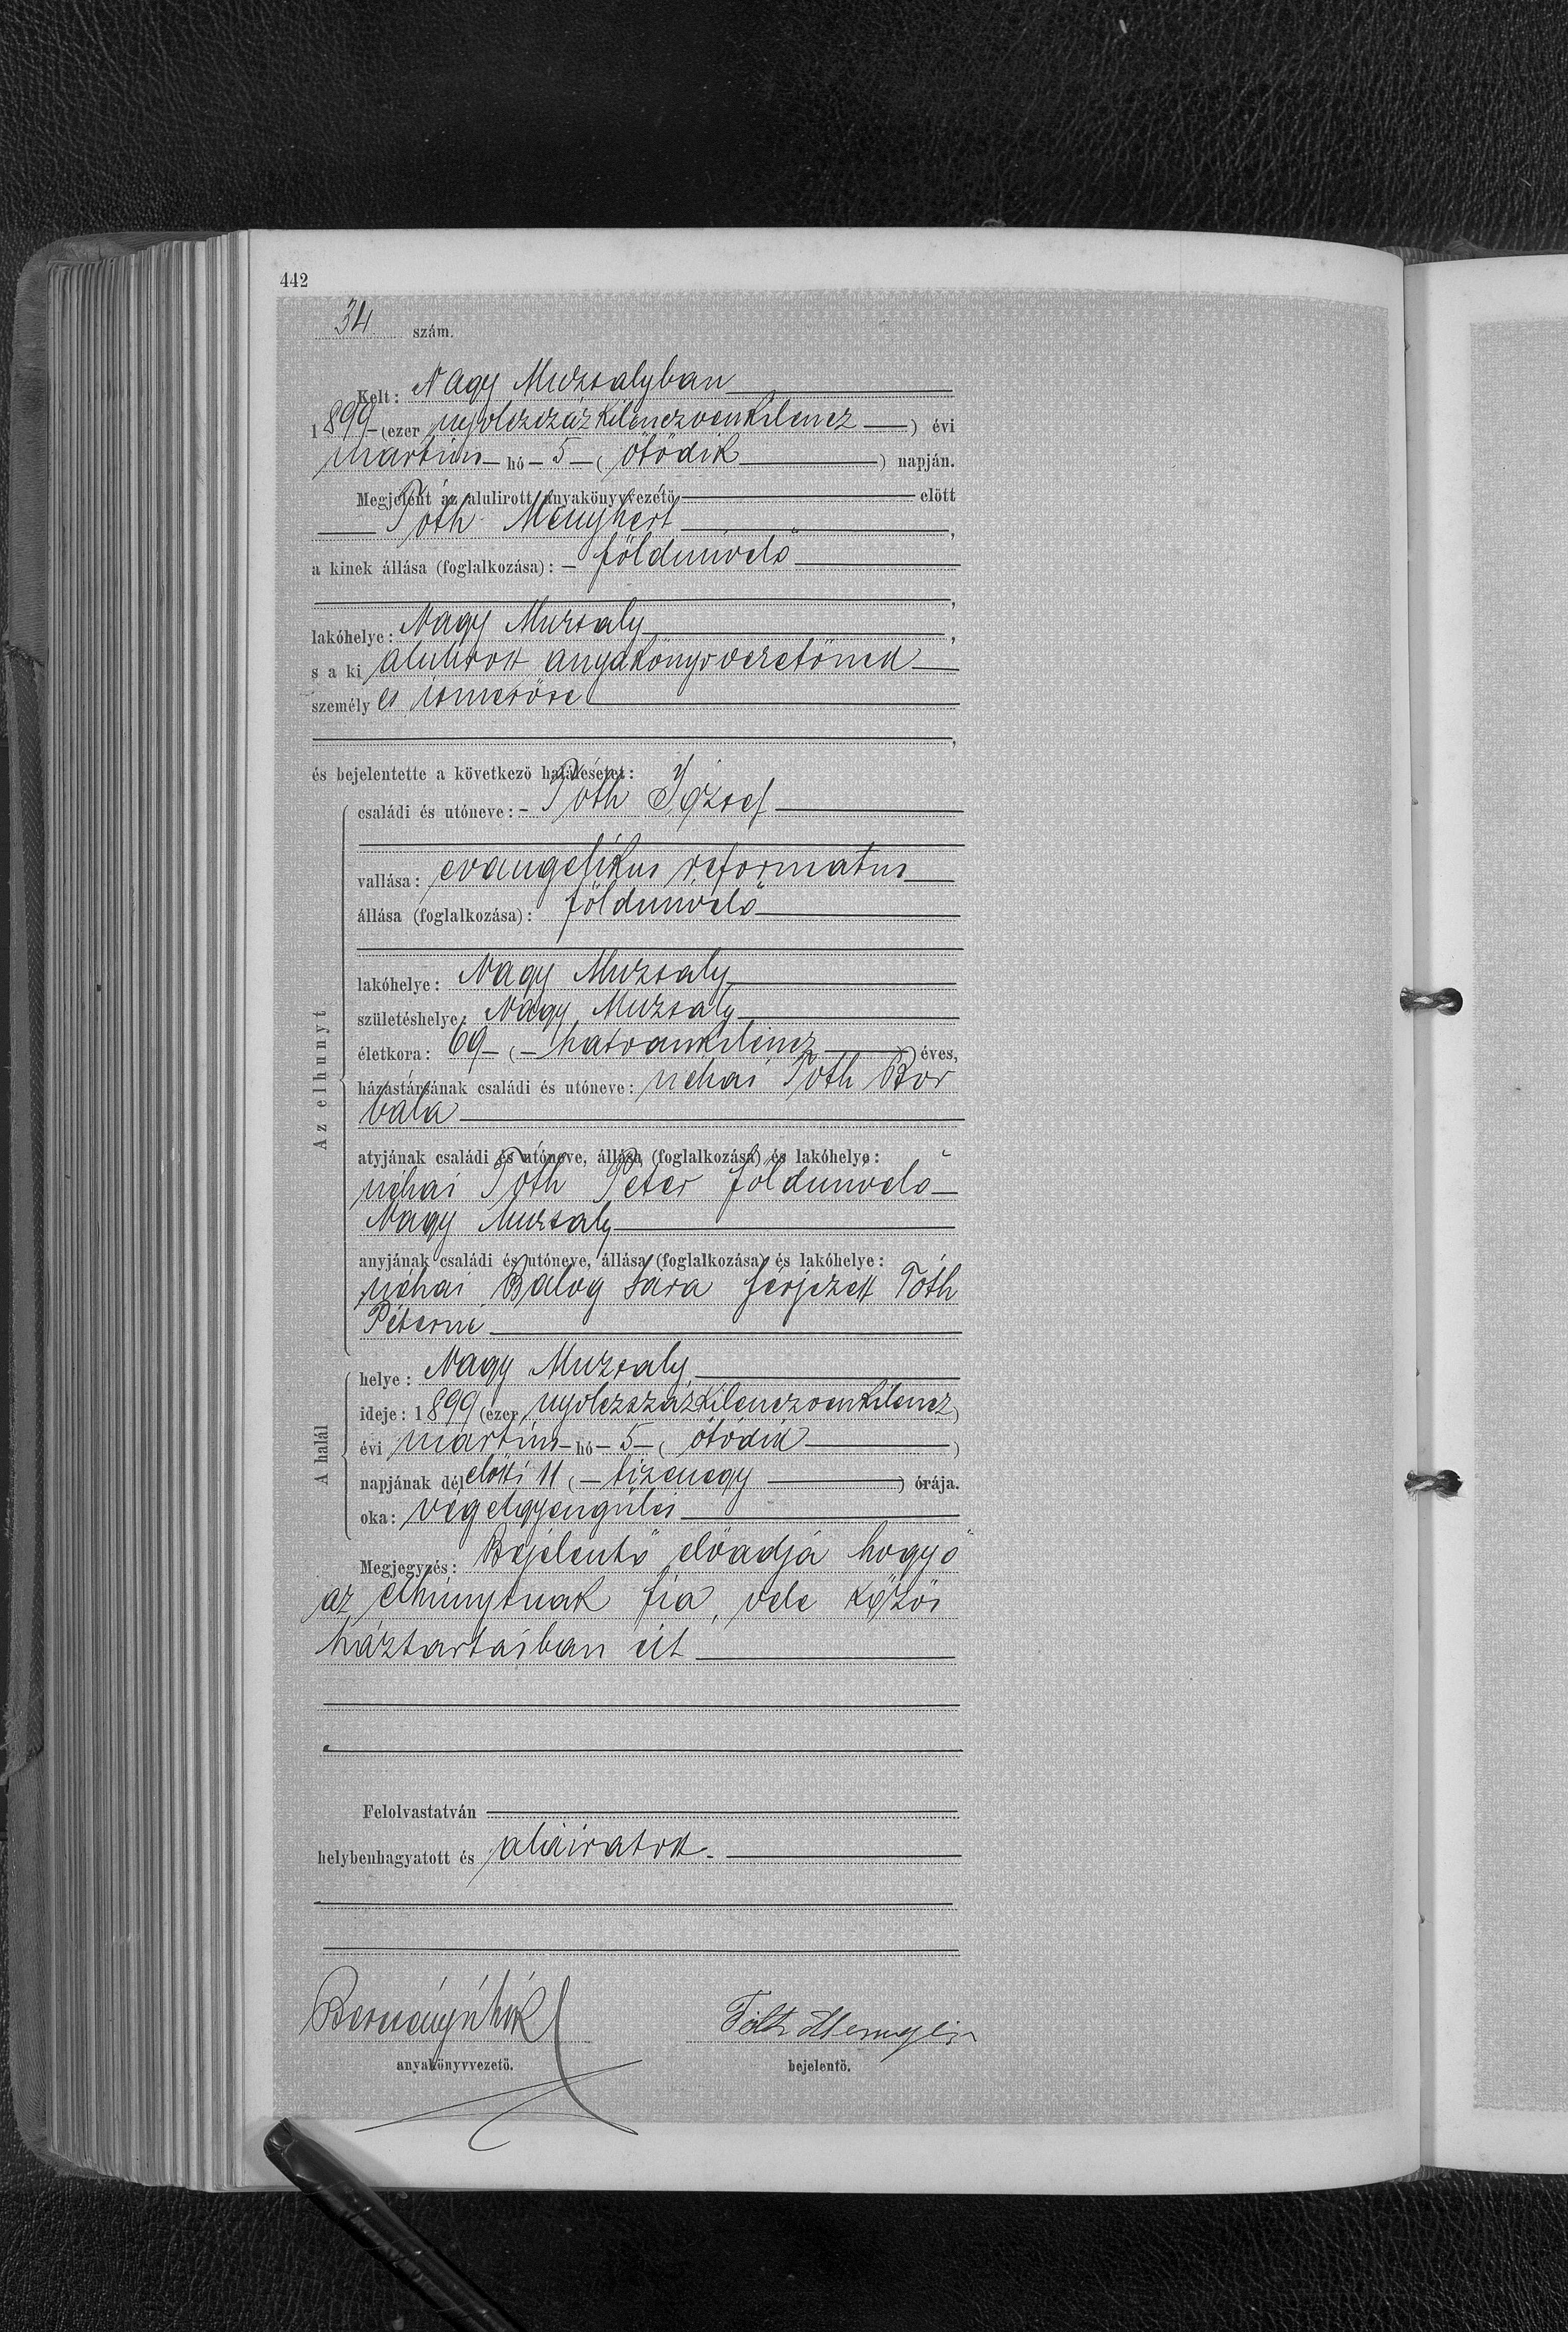 442
34 szám.
Kelt: Nagy Muzsalyban
1899 (ezer nyolczszázkilenczvenkilencz) évi
martius hó 5 (ötödik) napján.
Megjelent az alulirott anyakönyvvezető előtt
Tóth Menyhért,
a kinek állása (foglalkozása): földmivelő
,
lakóhelye: Nagy Muzsaly,
s a ki alulirott anyakönyvvezetőnek
személyes ismerőse
,
és bejelentette a következő halálesetet:
Az elhunyt
családi és utóneve: Tóth József
vallása: evangelikus reformatus
állása (foglalkozása): földmivelő
lakóhelye: Nagy Muzsaly
születéshelye: Nagy Muzsaly
életkora: 69 (hatvankilencz) éves,
házastársának családi és utóneve: néhai Tóth Bor
bála
atyjának családi és utóneve, állása (foglalkozása) és lakóhelye:
néhai Tóth Péter földmivelő
Nagy Muzsaly
anyjának családi és utóneve, állása (foglalkozása) és lakóhelye:
néhai Balog Sára férjezett Tóth
Péterné
A halál
helye: Nagy Muzsaly
ideje: 1899 (ezer nyolczszázkilenczvenkilencz)
évi martius hó 5 (ötödik)
napjának délelőtti 11 (tizenegy) órája.
oka: végelgyengülés
Megjegyzés: Bejelentő előadja hogy ő
az elhunytnak fia, vele közös
háztartásban élt
Felolvastatván
helybenhagyatott és aláiratott.
Tóth Menyhér
anyakönyvvezető. bejelentő.